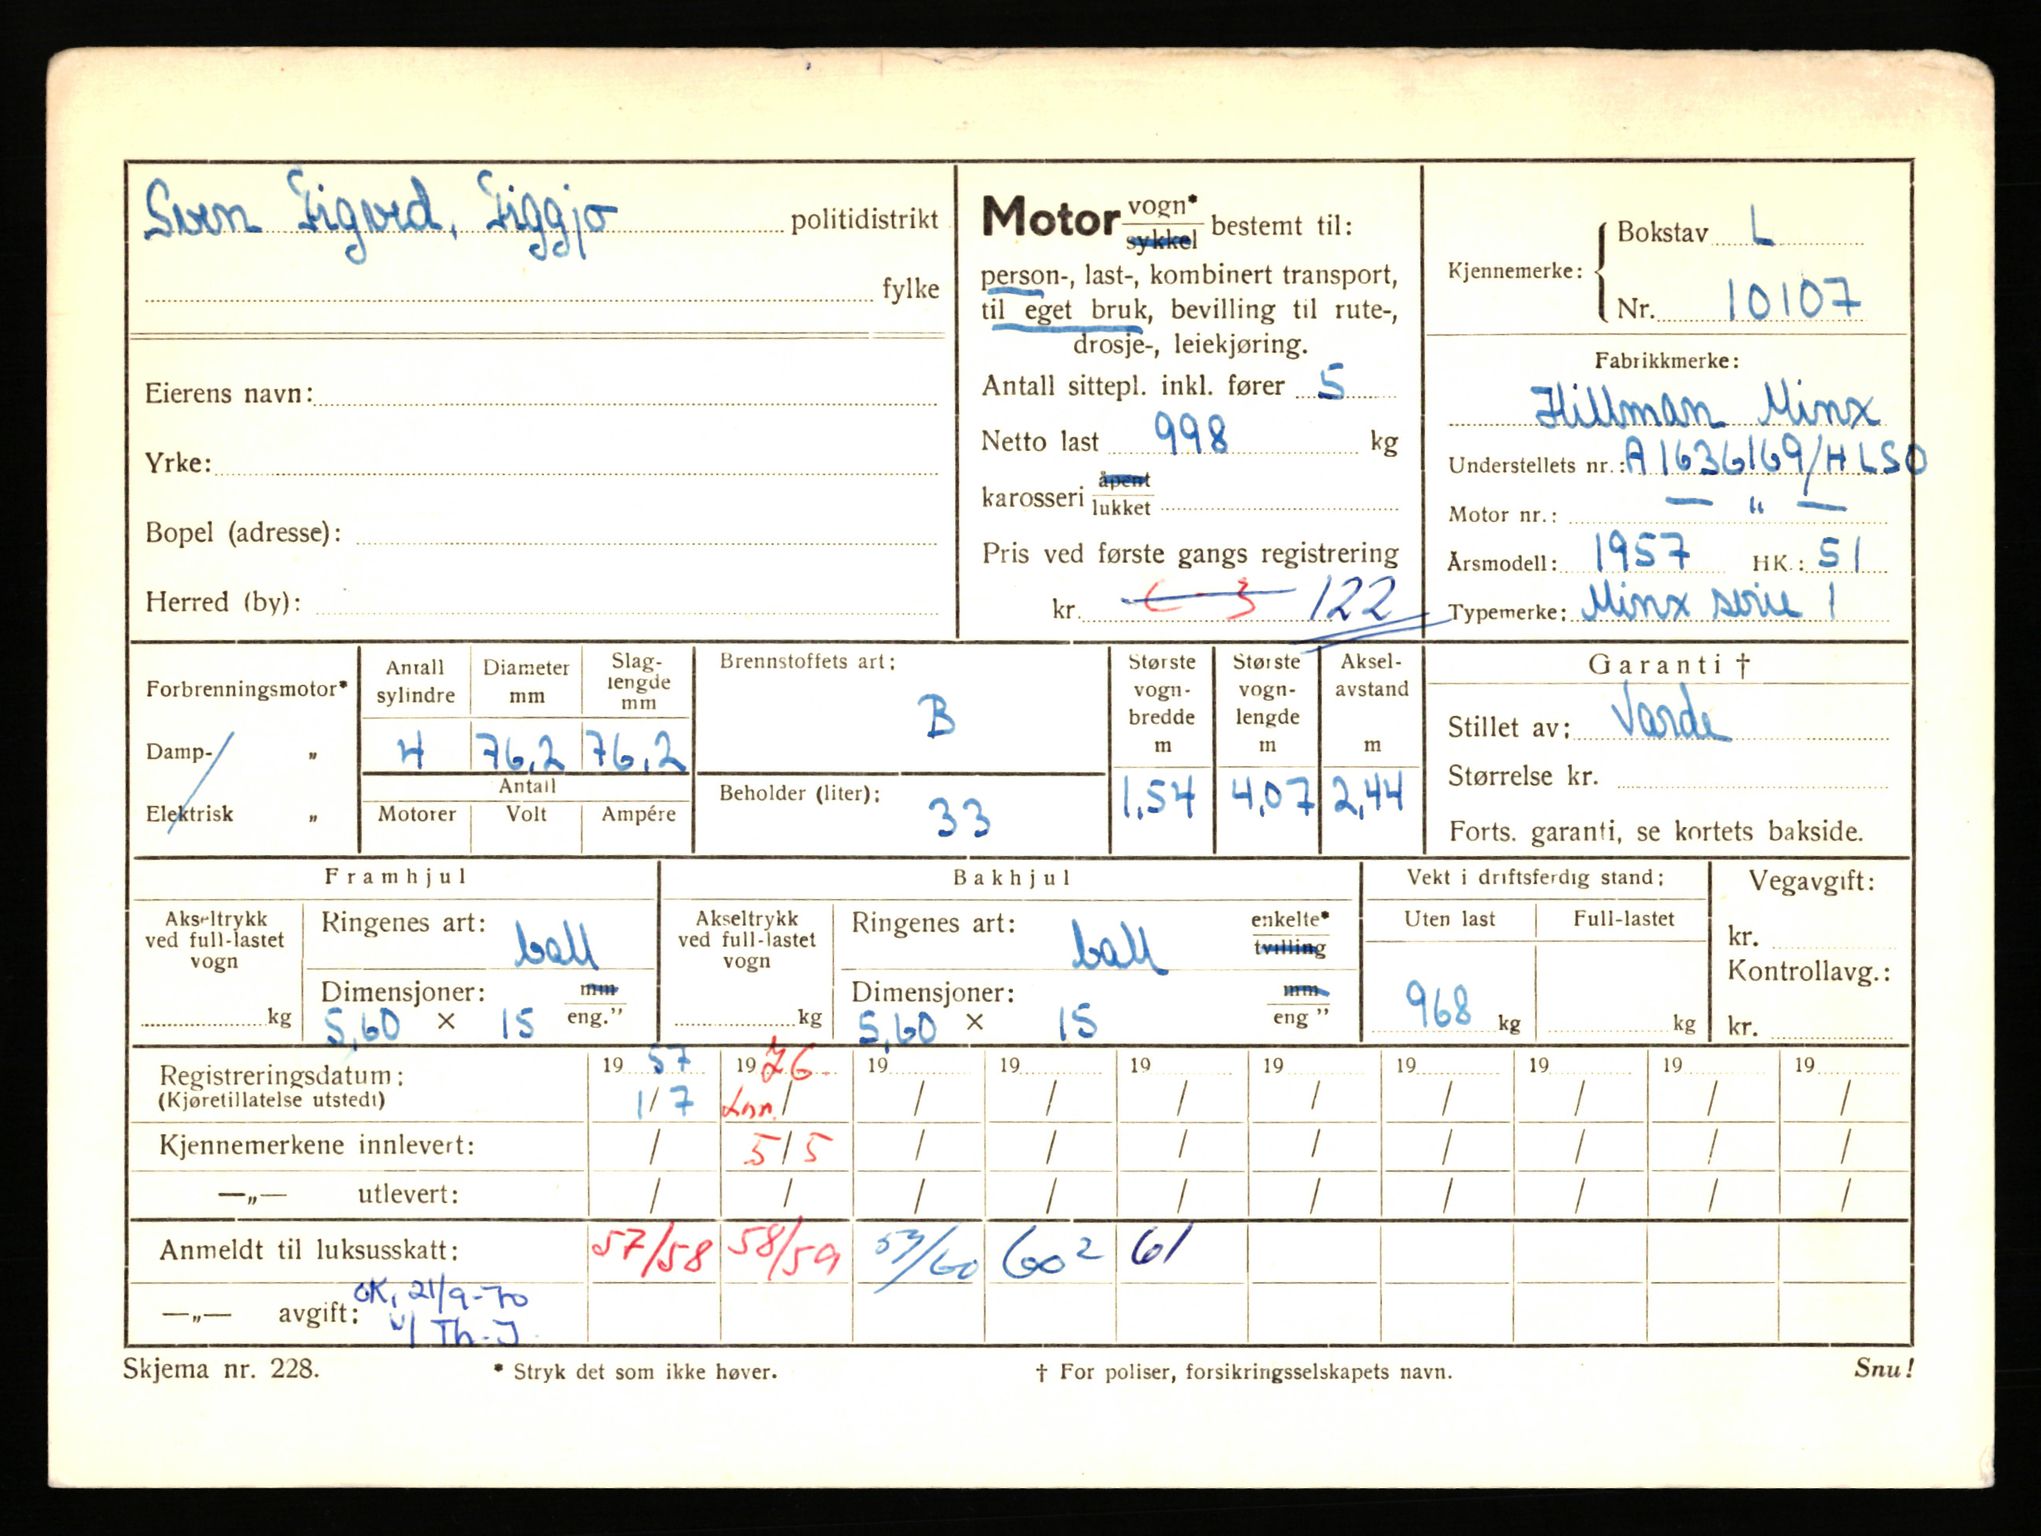 Sven Sigved, Siggjo politidistrikt
fylke
Eierens navn:
Yrke:
Bopel (adresse):
Herred (by):
Motor vogn* sykkel bestemt til:
person-, last-, kombinert transport,
til eget bruk, bevilling til rute-,
drosje-, leiekjøring.
Antall sittepl. inkl. fører 5
Netto last 998 kg
karosseri åpent lukket
Pris ved første gangs registrering
kr. 122
Kjennemerke: Bokstav L
Nr. 10107
Fabrikkmerke:
Hillman Minx
Understellets nr.: A1636169/HLSO
Motor nr.: — „ —
Årsmodell: 1957 HK.: 51
Typemerke: Minx serie 1
Forbrenningsmotor*
Damp- „
Elektrisk „
Antall sylindre
Diameter mm
Slag-lengde mm
4 76,2 76,2
Antall
Motorer Volt Ampére
Brennstoffets art:
B
Beholder (liter):
33
Største vogn-bredde m
1,54
Største vogn-lengde m
4,07
Aksel-avstand m
2,44
Garanti †
Stillet av: Varde
Størrelse kr.
Forts. garanti, se kortets bakside.
Framhjul
Akseltrykk ved full-lastet vogn
kg
Ringenes art: ball
Dimensjoner: mm
5,60 × 15 eng.”
Bakhjul
Akseltrykk ved full-lastet vogn
kg
Ringenes art: ball enkelte* tvilling
Dimensjoner: mm
5,60 × 15 eng ”
Vekt i driftsferdig stand:
Uten last Full-lastet
968 kg kg
Vegavgift:
kr.
Kontrollavg.:
kr.
Registreringsdatum: 19 57 19 76 19 19 19 19 19 19 19 19
(Kjøretillatelse utstedt) 1/7 / / / / / / / / /
Kjennemerkene innlevert: / 5/5 / / / / / / / /
—„— utlevert: / / / / / / / / / /
Anmeldt til luksusskatt: 57/58 58/59 59/60 60² 61
—„— avgift: OK, 21/9-70
v/ Th.J.
Skjema nr. 228. * Stryk det som ikke høver. † For poliser, forsikringsselskapets navn. Snu!